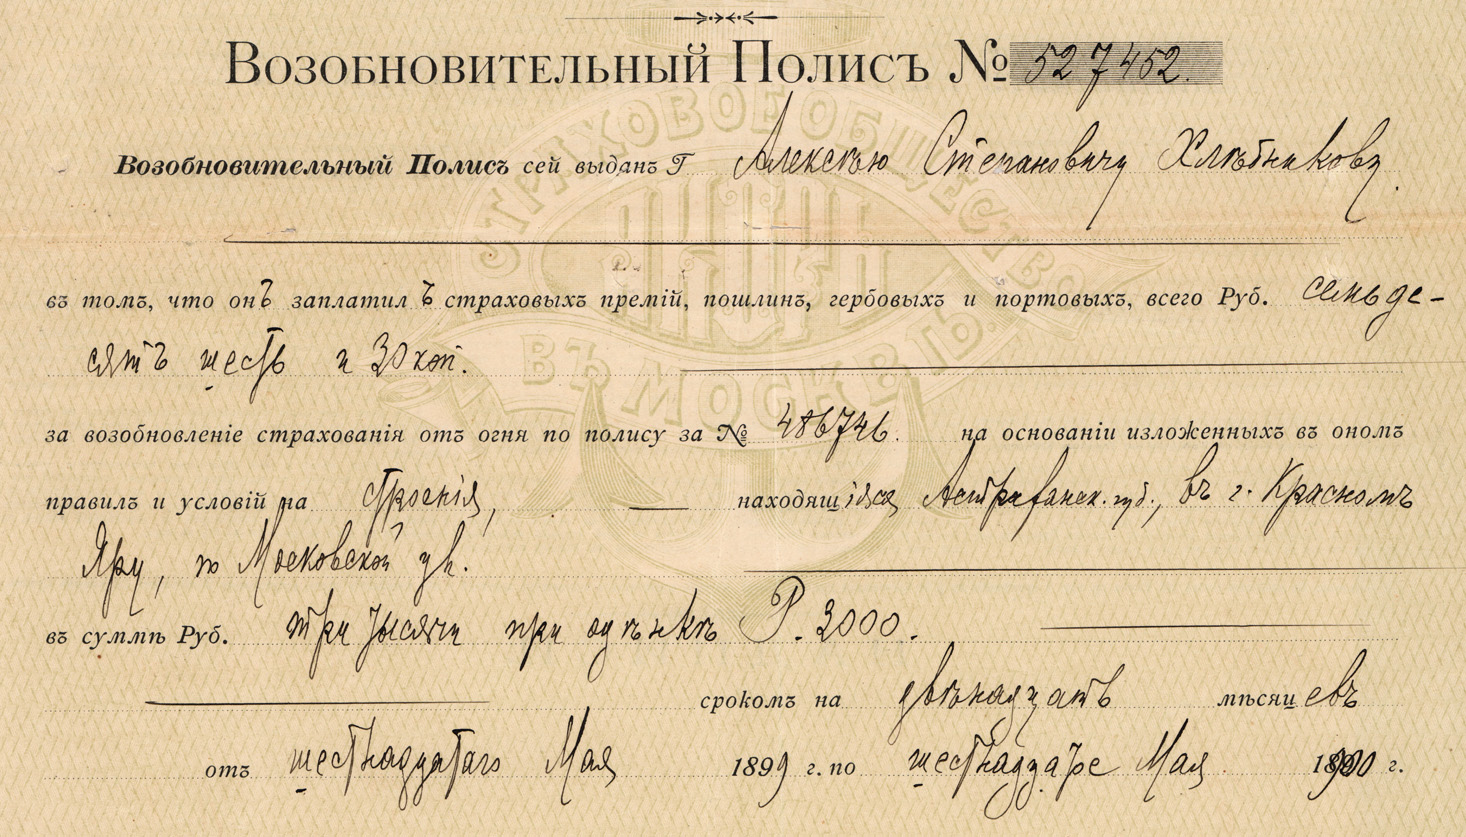 Возобновительный Полисъ № 527452.
Возобновительный Полисъ сей выданъ Г Алексѣю Степановичу Хлѣбникову.
въ томъ, что онъ заплатилъ страховыхъ премій, пошлинъ, гербовыхъ и портовыхъ, всего Руб. семьде-
сятъ шесть и 30 коп.
за возобновленіе страхованія отъ огня по полису за № 486746. на основаніи изложенныхъ въ ономъ
правилъ и условій на строенія, находящіяся Астраханск. губ., въ г. Красномъ
Яру, по Московской ул.
въ суммѣ Руб. три тысячи при оцѣнкѣ Р. 3000.
срокомъ на двѣнадцать мѣсяцевъ
отъ шестнадцатаго Мая 1899 г. по шестнадцатое Мая 1900 г.
СТРАХОВОЕ ОБЩЕСТВО
ЯКОРЬ
ВЪ МОСКВѢ